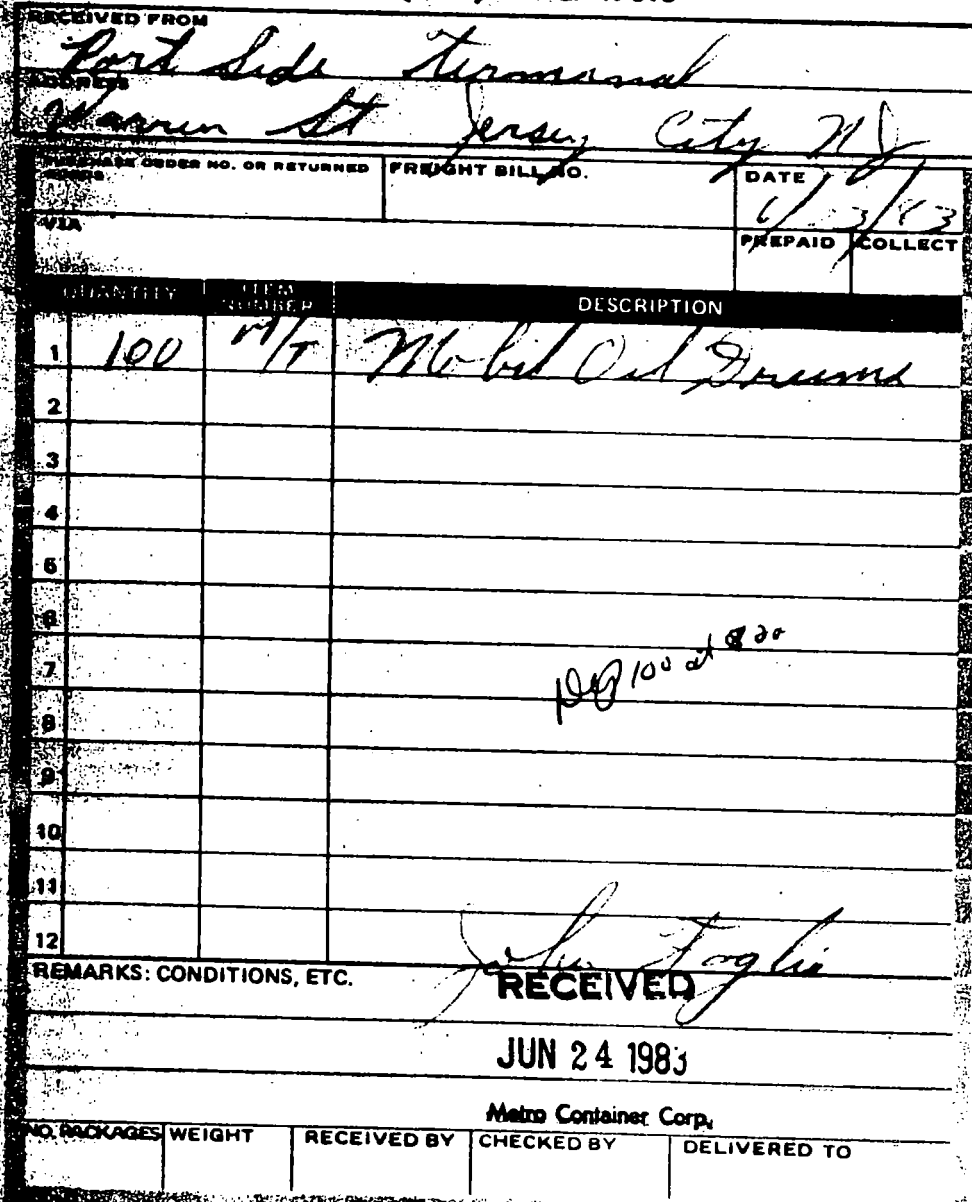 RECEIVED FROM
Port Side Termanal
ADDRESS
Warren St Jersey City NJ
PURCHASE ORDER NO. OR RETURNED GOODS
FREIGHT BILL NO.
DATE
6/23/83
VIA
PREPAID COLLECT
QUANTITY ITEM NUMBER DESCRIPTION
1 100 M/T Mobil Oil Drums
2
3
4
5
6
7
100 at
8
9
10
11
12
John Foglio
REMARKS: CONDITIONS, ETC.
RECEIVED
JUN 24 1983
Metro Container Corp.
NO. PACKAGES WEIGHT RECEIVED BY CHECKED BY DELIVERED TO